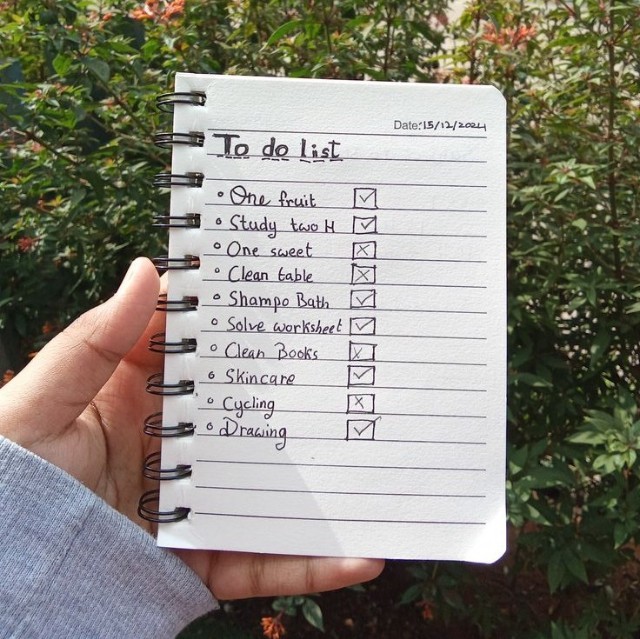 Date: 15/12/2024
To do list
• One fruit ☑
• Study two H ☑
• One sweet ☒
• Clean table ☒
• Shampo Bath ☑
• Solve worksheet ☑
• Clean Books ☒
• Skincare ☑
• Cycling ☒
• Drawing ☑